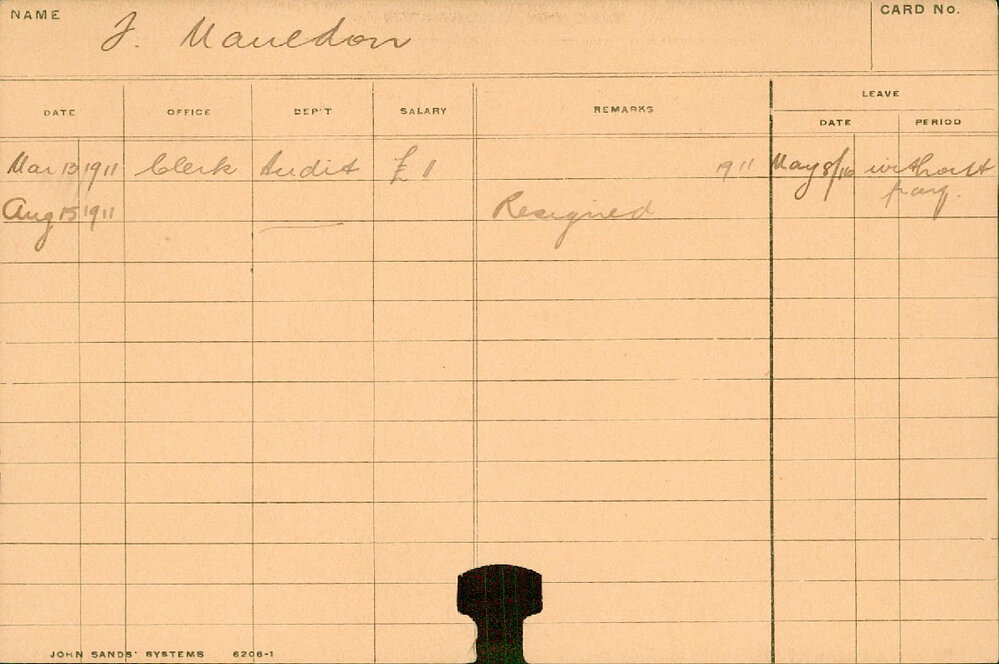 NAME J. Mauldon CARD No.
LEAVE
DATE OFFICE DEP'T SALARY REMARKS DATE PERIOD
Mar 13 1911 Clerk Audit £1 1911 May 8/16 without
pay.
Aug 15 1911 Resigned
JOHN SANDS' SYSTEMS 6206-1